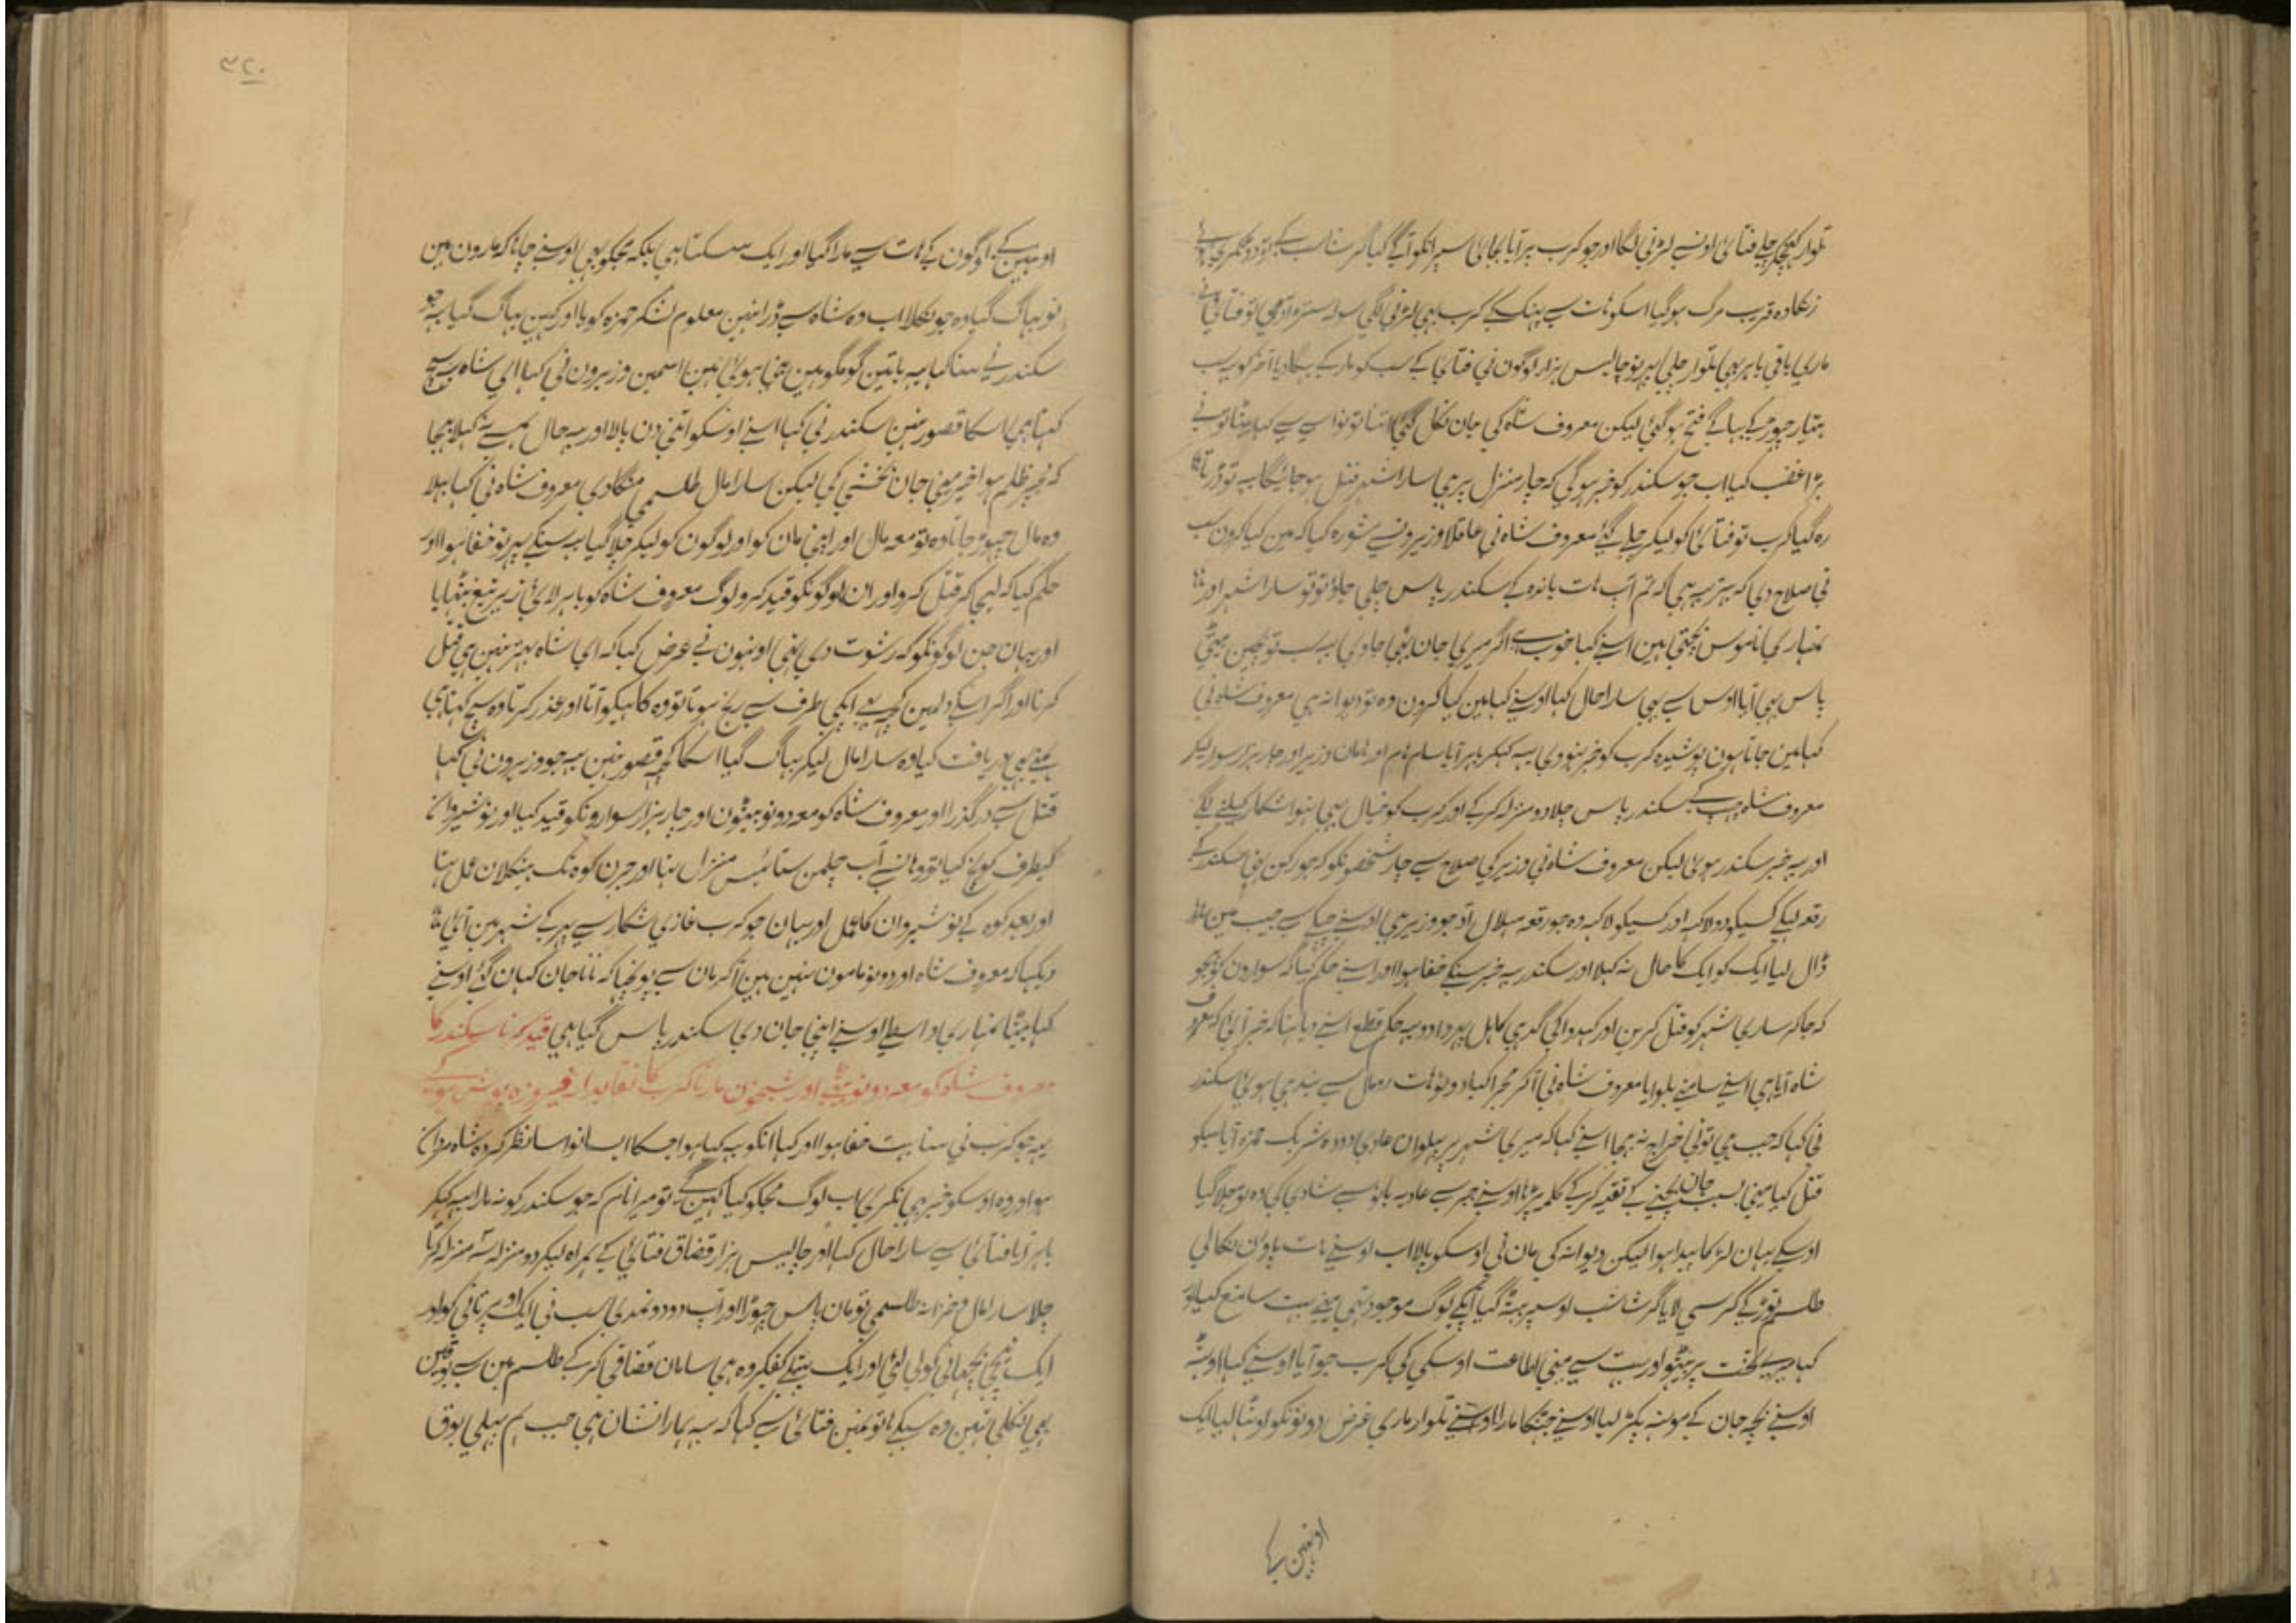 تلوار کھینچکر چلے فتائی اونسے لڑنی لگا اور جو کرب پر آیا بجائی سپر انکو آگے کیا
زنکا وہ قریب مرگ ہوگیا اسکو ہات سے پہنک کے کرب بہی لڑنی لگی سولہ سترہ آدمی تو فتائی نے
ماری باقی باہر بہی تلوار چلی پہر تو چالیس ہزار لوگون نی فتائی کے سب کو مار کے بہگا دیا آخر کو یہ سب
ہتیار چہوڑ کے بہاگے فتح ہوگئی لیکن معروف شاہ کی جان نکل گئی اتنا تو نواسے سے کہا بیٹا تونے
بڑا غضب کیا اب جو سکندر کو خبر ہوگی کہ چار منزل پر ہی سارا شہر قتل ہو جائیگا یہ تو ڈرتا
رہ گیا کرب تو فتائی کو لیکر چلے گئے معروف شاہ نی عاقلا وزیرونسے مشورہ کیا کہ مین کیا کرون سب
نی صلاح دی کہ بہتر یہ ہی کہ تم آپ ہات باندہ کے سکندر پاس چلی جاؤ تو تو سارا شہر اور
تمہاری ناموس بچتی ہین اسنے کہا خوب ہی اگر میری جان بہی جاوی یہ سب تو بچین بیٹی
پاس بہی آیا اوس سے بہی سارا حال کہا اوسنے کہا مین کیا کرون وہ تو دیوانہ ہی معروف شاہ نی
کہا مین جاتا ہون پوشیدہ کرب کو خبر نہووی یہ کہکر باہر آیا سام نام اور ہامان وزیر اور چار ہزار سوار لیکر
معروف شاہ چہپ کے سکندر پاس چلا دو منزلہ کر کے اور کرب کو خیال بہی نہوا شکار کیلنے لگے
اور یہ خبر سکندر ہوئی لیکن معروف شاہ نی وزیر کی صلاح سے چار شخصونکو کہ جو رکن تہی سکندر کے
رقعہ لیکے کسیکو دو لاکہہ اور کسیکو لاکہہ وہ جو رقعہ ہلال زاد جو وزیر ہی اوسنے چپکے سے جیب مین
ڈال لیا ایک کو ایک کا حال نہ کہلا اور سکندر یہ خبر سنکے خفا ہوا اور اسنے حکم کیا کہ سوارون کو بہیجو
کہ جا کہ ساری شہر کو قتل کرین اور کہدوا کی گدہی کا ہل پہروا دو یہ حکم قطع اسنے دیا تہا کہ خبر آئی کہ معروف
شاہ آیا ہی اسنے سامنے بلوایا معروف شاہ نی آکر مجرا کیا دونو ہات رومال سے بندہی ہوئی سکندر
نی کہا کہ جب ہی تونی خراج نہ بہیجا اسنے کہا کہ میری شہر پر پہلوان عادی دودہ شریک حمزہ آیا سبکو
قتل کیا مینی بسبب جان بچنے کے تقیہ کر کے کلمہ پڑہا اوسنے جبر سے عادیہ بانو سے شادی کی وہ تو چلا گیا
اوسکے یہان لڑکا پیدا ہوا لیکن دیوانہ کی مان نی اوسکو پالا اب اوسنے ہات پاون نکالی
طلسم توڑ کے کرسی لایا گرشاشب اوسپر بیٹہ گیا آپکے لوگ موجود تہی مینے بہت سا منع کیا
کہا میری تخت پر بیٹہو اور بہت سے مینی اطاعت اوسکی کی کرب جو آیا اوسنے کہا اوٹہہ
اوسنے بچہ جان کے مونہہ پکڑ لیا اوسنے جہٹکا مارا اوسنے تلوار ماری غرض دونونکو اوٹہا لیا ایک
اونہین کے
۳۲۰
اونہین کے لوگون کے ہات سے مارا گیا اور ایک سسکتا ہی بلکہ مجکو بہی اوسنے چاہا کہ مارون مین
تو بہاگ گیا وہ جو نکلا اب وہ شاہ سے ڈرا نہین معلوم لشکر حمزہ کو یا اور کہین بہاگ گیا یہ جو
سکندر نے سنا کہا یہ باتین گو مگو مین خفا ہوئی ہین اسمین وزیرون نی کہا ای شاہ یہ سچ
کہتا ہی اسکا قصور نہین سکندر نی کہا اسنے اوسکو اتنی دن پالا اور یہ حال ہمسے نہ کہلا بہیجا
کہ مجہپر ظلم ہوا خیر مینی جان بخشی کی لیکن سارا مال طلسمی منگا دی معروف شاہ نی کہا بہلا
وہ مال چہوڑ جاتا وہ تو معہ مال اور اپنی مان کو اور لوگون کو لیکر چلا گیا یہ سنکے پہر تو خفا ہوا اور
حکم کیا کہ لیجا کر قتل کرو اور ان لوگونکو قید کرو لوگ معروف شاہ کو باہر لائی زیر تیغ بٹہایا
اور یہان جن لوگونکو کہ رشوت دی تہی اونہون نے عرض کیا کہ ای شاہ بہتر نہین ہی قتل
کرنا اور اگر اسکے دلمین کچہہ بہی آپکی طرف سے رنج ہوتا تو وہ کاہیکو آتا اور عذر کرتا وہ سچ کہتا ہی
ہمنے بہی دریافت کیا وہ سارا مال لیکر بہاگ گیا اسکا کچہہ قصور نہین یہ جو وزیرون نی کہا
قتل سے درگذرا اور معروف شاہ کو معہ دونو بیٹون اور چار ہزار سوارونکو قید کیا اور نوشیروان
کیطرف کوچ کیا تو وہانسے آب چلمن ستائیس منزل تہا اور جرن کوہ تک بینکلان عمل تہا
اور بعد کوہ کے نوشیروان کا عمل اور یہان جو کرب غازی شکار سے پہر کے شہر مین آئی
دیکہا کہ معروف شاہ اور دونو مامون نہین ہین آکر مان سے پوچہا کہ نانا جان کہان گئے اوسنے
کہا بیٹا تمہاری واسطے اوسنے اپنی جان دی سکندر پاس گیا ہی قید کرنا سکندر کا
معروف شاہ کو معہ دونو بیٹے اور شبخون مارنا کرب کا نقابدار فیروزہ پوش ہو کے
یہ جو کرب نی سنا بہت خفا ہوا اور کہا انکو یہ کیا ہوا جسکا ایسا نواسا نظر کردہ شاہ مردان
ہو اور وہ اوسکو خبر بہی نکری اب لوگ مجکو کیا کہین گے تو میرا نام کہ جو سکندر کو نہ مارا یہ کہکر
باہر آیا فتائی سے سارا حال کہا اور چالیس ہزار قضاق فتائی کے ہمراہ لیکر دو منزلہ سہ منزلہ کرتا
چلا سارا مال و خزانہ طلسمی تو مان پاس چہوڑا اور آپ دو دو نمدی سب نی ایک اوپر تانی کو اور
ایک نیچی بچہانی کو لی لئی اور ایک پتلے کفگیر وہ ہی سامان قضاقی کر کے طلسم مین سے بوقین
بہی نکلی تہین وہ سبکے ہاتونمین فتائی سے کہا کہ یہ ہمارا نشان ہی جب ہم پہلی بوق